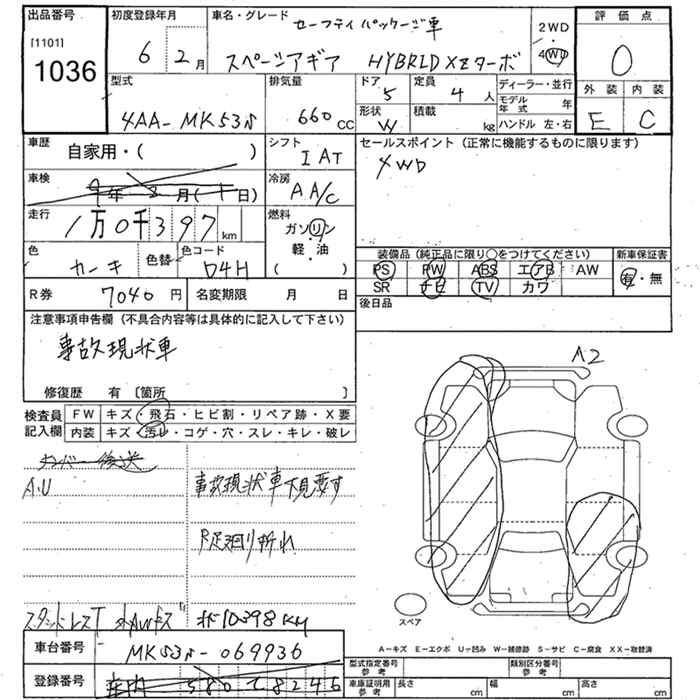 出品番号
[1101]
1036
初度登録年月
6 2月
車名・グレード
セーフティパッケージ車
スペーシアギア HYBRID XZターボ
2WD
4WD
評価点
0
外装 内装
E C
型式
4AA-MK53S
排気量
660cc
ドア
5
定員
4人
形状
W
積載
kg
ディーラー・並行
モデル年式 年
ハンドル 左・右
車歴
自家用・( )
シフト
IAT
セールスポイント (正常に機能するものに限ります)
4WD
車検
9年2月( 日)
冷房
AA/C
走行
1万0千397km
燃料
ガソリン
軽・油
( )
色
カーキ
色替
色コード
D4H
装備品 (純正品に限り○をつけてください)
PS PW ABS エアB AW
SR ナビ TV カワ
新車保証書
有・無
R券 7040円
名変期限 月 日
後日品
注意事項申告欄 (不具合内容等は具体的に記入して下さい)
事故現状車
修復歴 有 [箇所 ]
検査員記入欄
FW キズ・飛石・ヒビ割・リペア跡・X要
内装 キズ・汚レ・コゲ・穴・スレ・キレ・破レ
ナンバー後送
A.U
事故現状車下見要す
R足廻り折れ
10398KM
A2
スペア
A-キズ E-エクボ U-凹み W-補修跡 S-サビ C-腐食 XX-取替済
車台番号
MK53S-069936
登録番号
580 8246
型式指定番号 参考
類別区分番号 参考
車庫証明用 参考
長さ cm
幅 cm
高さ cm